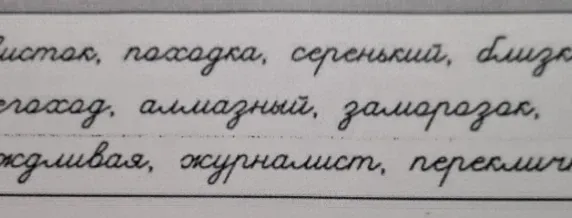 листок, походка, серенький, близк
егоход, алмазный, заморозок,
ждливая, журналист, переклич